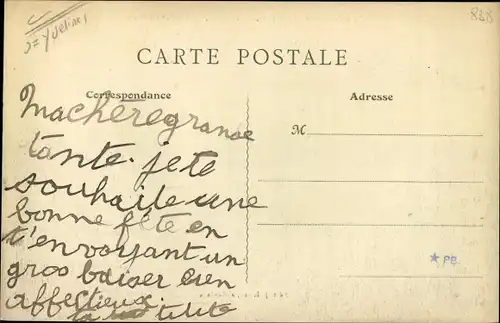 Yvelines
838
CARTE POSTALE
Correspondance
Adresse
M
ma chère grande
tante. je te
souhaite une
bonne fête en
t'envoyant un
gros baiser bien
affectieux.
ta titite
★ PB